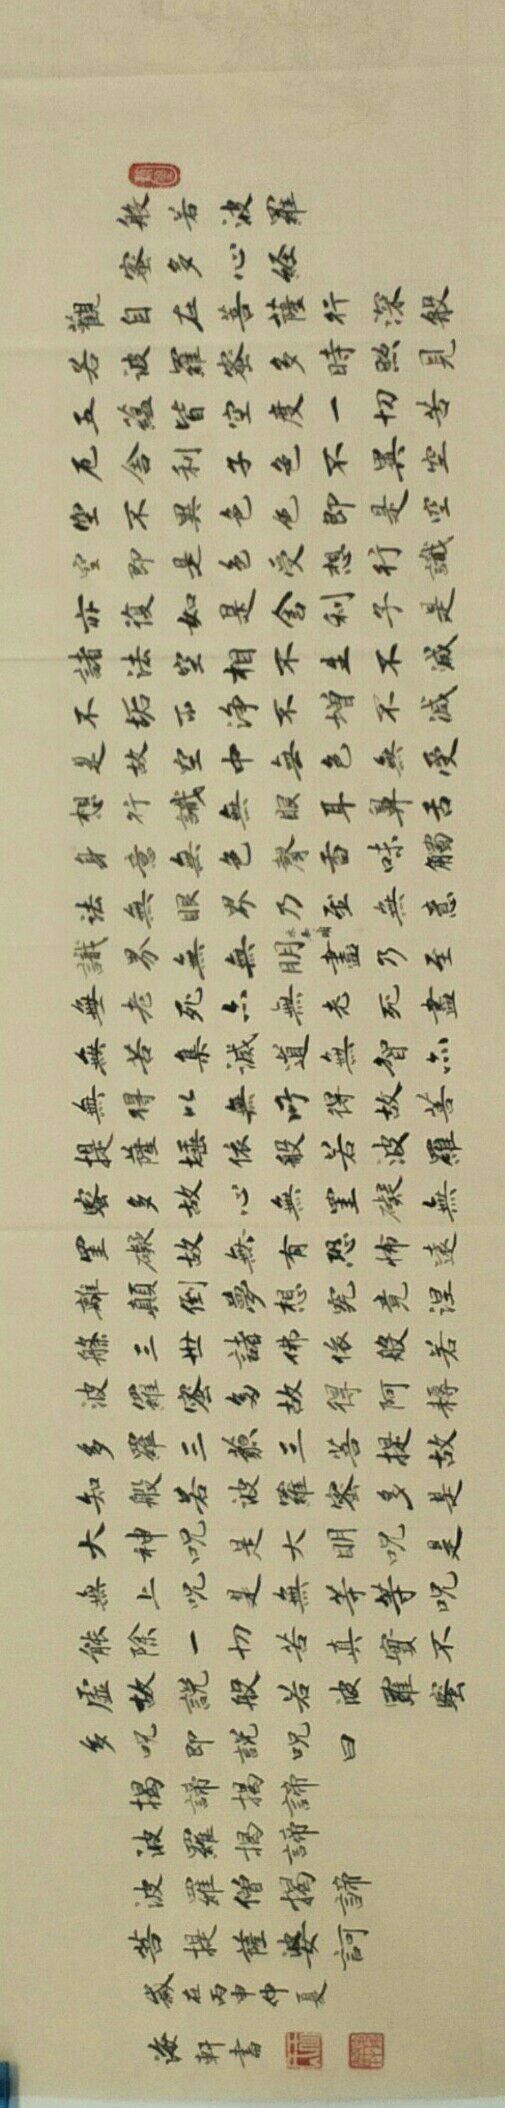 般若波羅
蜜多心經
觀自在菩薩行深般
若波羅蜜多時照見
五蘊皆空度一切苦
厄舍利子色不異空
空不異色色即是空
空即是色受想行識
亦復如是舍利子是
諸法空相不生不滅
不垢不淨不增不減
是故空中無色無受
想行識無眼耳鼻舌
身意無色聲香味觸
法無眼界乃至無意
識界無無明盡乃至
無老死亦無老死盡
無苦集滅道無智亦
無得以無所得故菩
提薩埵依般若波羅
蜜多故心無罣礙無
罣礙故無有恐怖遠
離顛倒夢想究竟涅
槃三世諸佛依般若
波羅蜜多故得阿耨
多羅三藐三菩提故
知般若波羅蜜多是
大神咒是大明咒是
無上咒是無等等咒
能除一切苦真實不
虛故說般若波羅蜜
多咒即說咒曰
揭諦揭諦
波羅揭諦
波羅僧揭諦
菩提薩婆訶
歲在丙申仲夏
海軒書